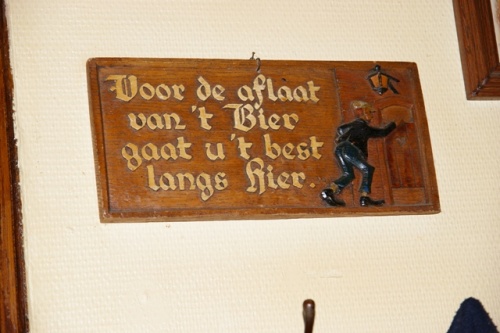 Voor de aflaat
van 't Bier
gaat u 't best
langs Hier.